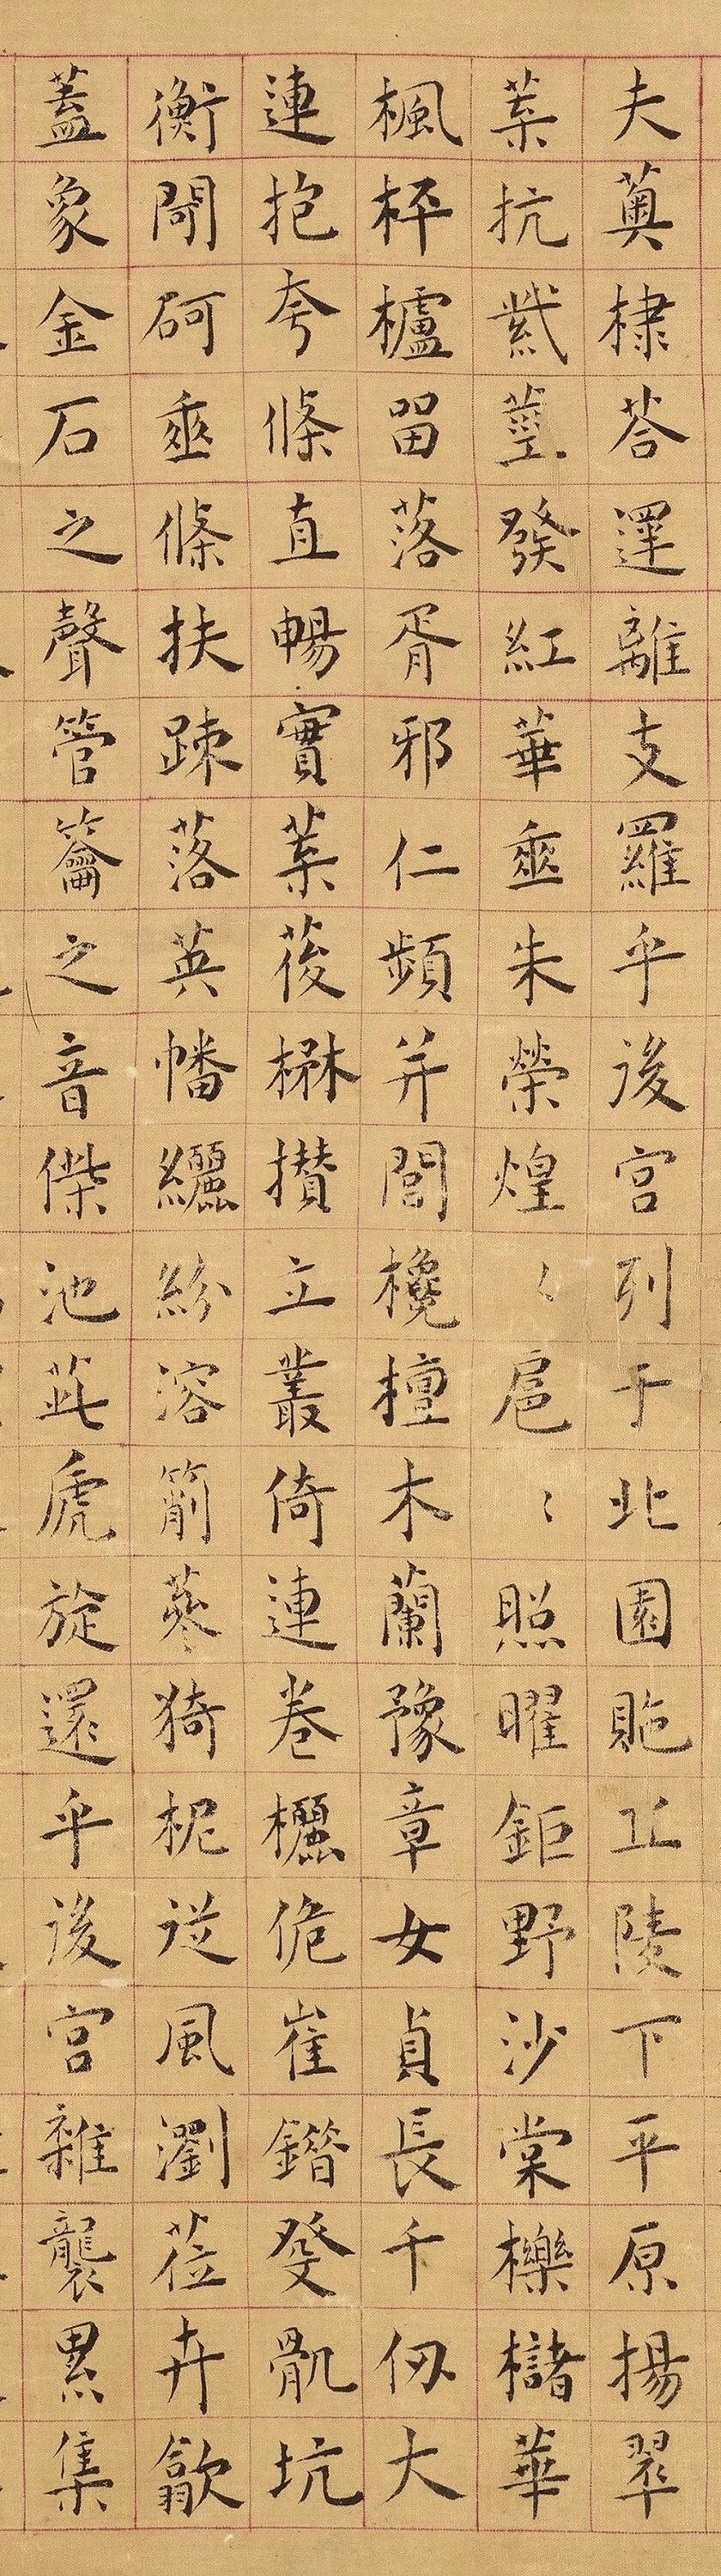 夫薁棣荅遝離支羅乎後宮列于北園貤丘陵下平原揚翠
葉抗紫莖發紅華垂朱榮煌〻扈〻照曜鉅野沙棠櫟櫧華
楓枰櫨留落胥邪仁頻并閭欃檀木蘭豫章女貞長千仞大
連抱夸條直暢實葉葰楙攢立叢倚連卷欐佹崔錯癹骫坑
衡閜砢垂條扶踈落英幡纚紛溶箾蔘猗柅從風瀏莅卉歙
蓋象金石之聲管籥之音傑池茈虒旋還乎後宮雜襲累集